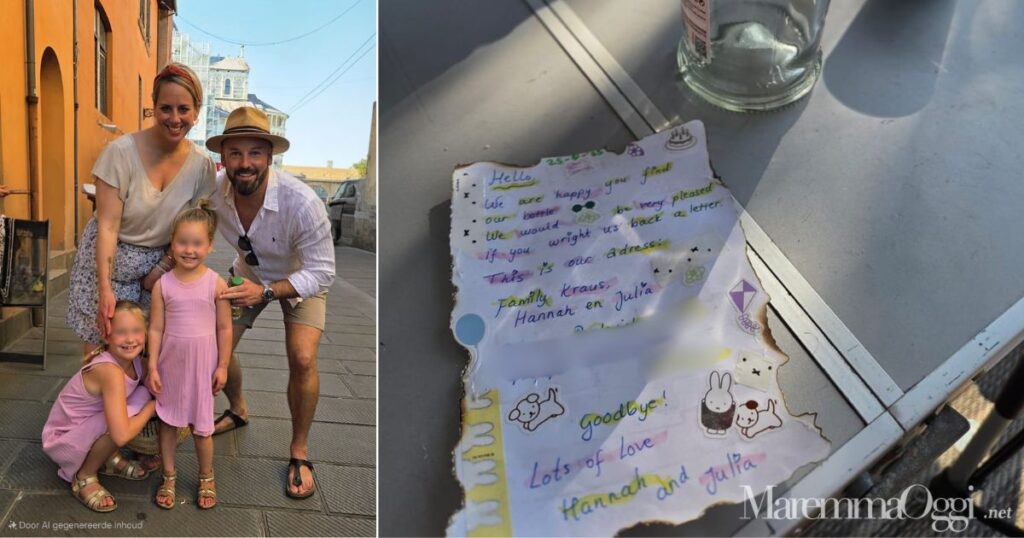 Door AI gegenereerde inhoud
25-8-25
Hello,
We are happy you find
our bottle
We would be very pleased
If you wright us back a letter.
This is our adress:
Family Kraus,
Hannah en Julia
Goodbye!
Lots of Love
Hannah and Julia
MaremmaOggi.net